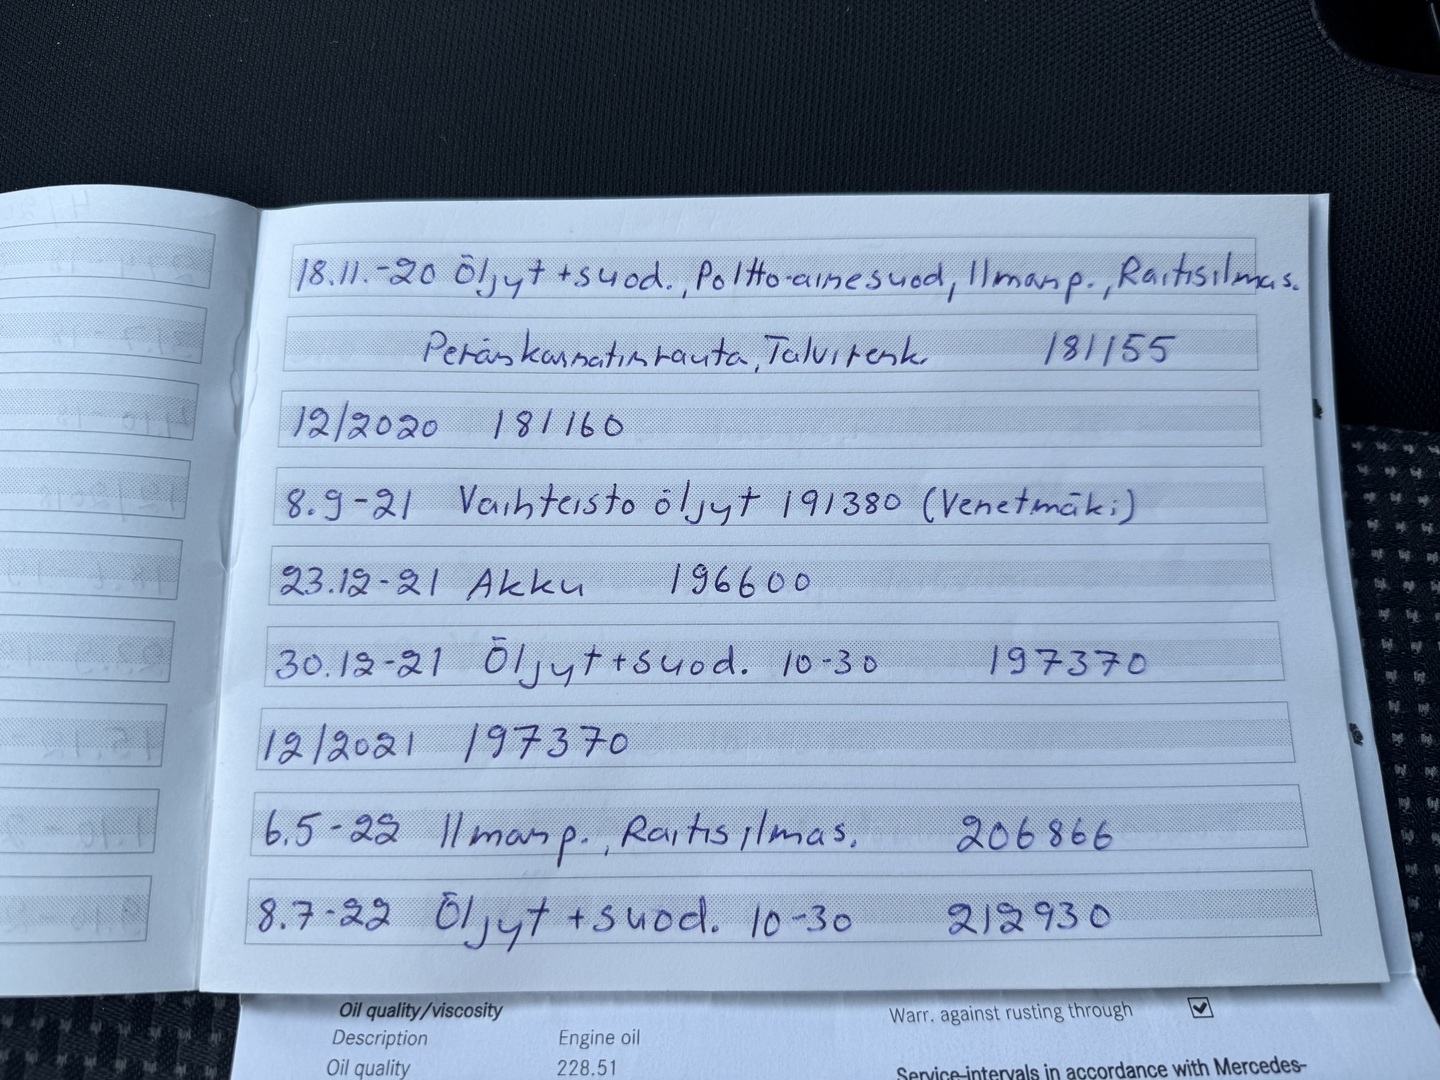 18.11.-20 Öljyt + suod., Poltto-ainesuod, Ilmanp., Raitisilmas.
Peränkannatinrauta, Talvirenk. 181155
12/2020 181160
8.9-21 Vaihteisto öljyt 191380 (Venetmäki)
23.12-21 Akku 196600
30.12-21 Öljyt + suod. 10-30 197370
12/2021 197370
6.5-22 Ilmanp., Raitisilmas. 206866
8.7-22 Öljyt + suod. 10-30 212930
Oil quality/viscosity
Description Engine oil
Oil quality 228.51
Warr. against rusting through
Service-intervals in accordance with Mercedes-